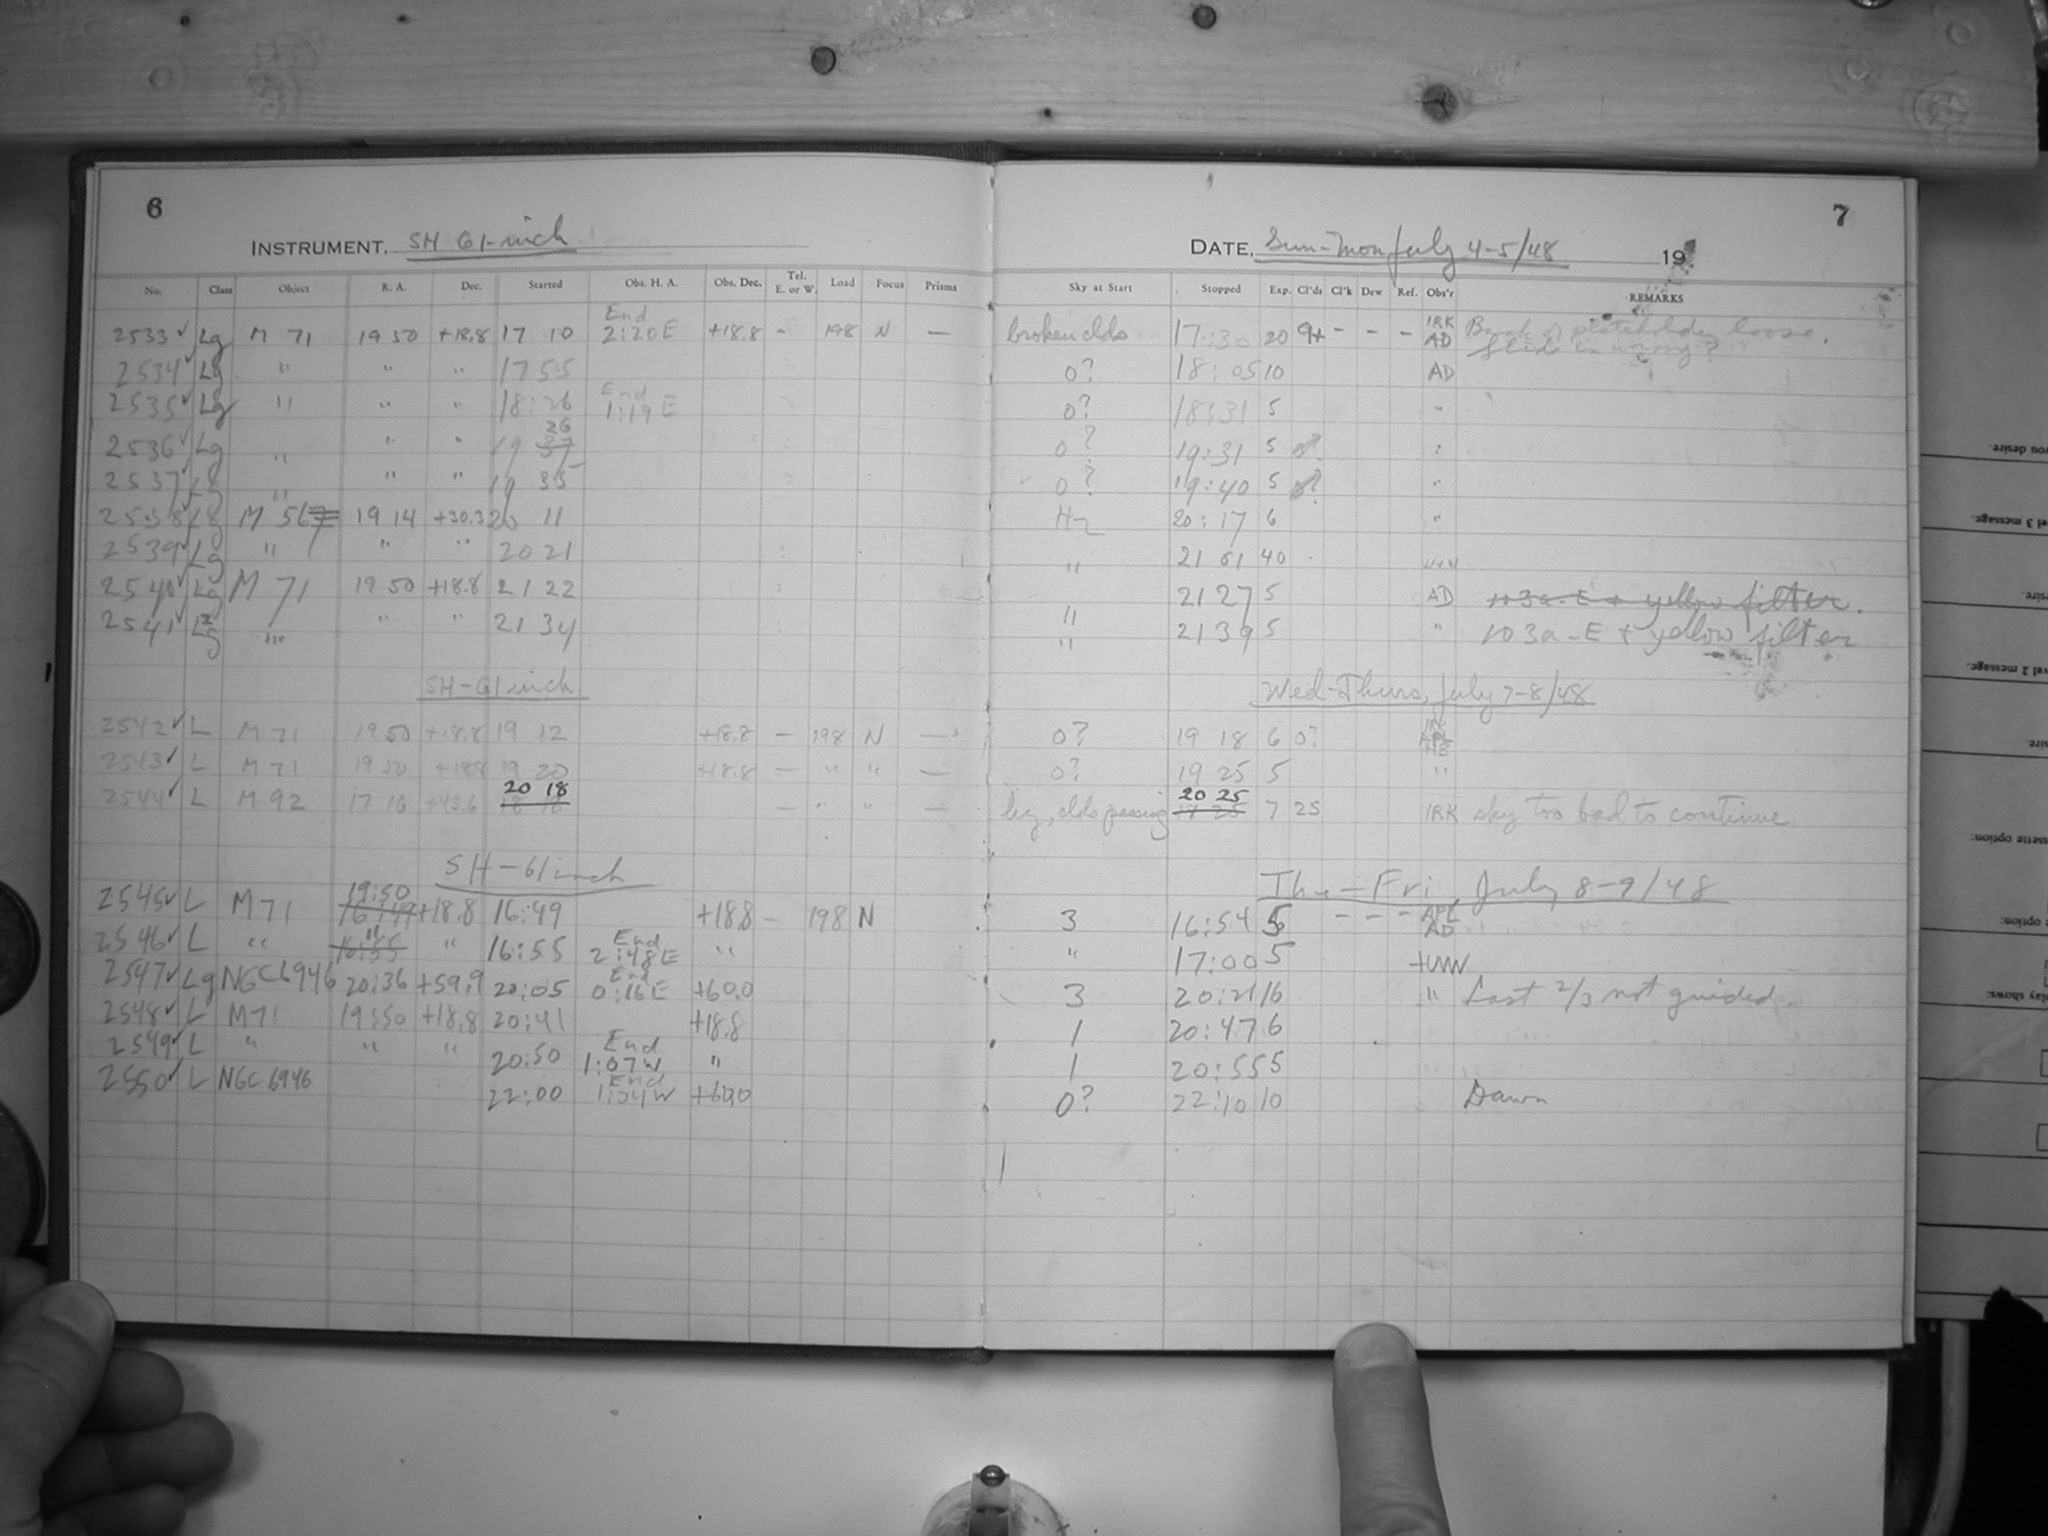 6
INSTRUMENT, SH 61-inch
No. Class Object R. A. Dec. Started Obs. H. A. Obs. Dec. Tel. E. or W. Load Focus Prisms
2533 ✓ Lg M 71 19 50 +18.8 17 10 End 2:20 E +18.8 - 198 N —
2534 ✓ Lg " " " 17 55
2535 ✓ Lg " " " 18:26 End 1:19 E
2536 ✓ Lg " " " 19 26
2537 ✓ Lg " " " 19 35
2538 ✓ Lg M 56 19 14 +30.3 20 11
2539 ✓ Lg " " " 20 21
2540 ✓ Lg M 71 19 50 +18.8 21 22
2541 ✓ Lg " " " 21 34
SH-61 inch
2542 ✓ L M 71 19 50 +18.8 19 12 +18.8 — 198 N —
2543 ✓ L M 71 19 50 +18.8 19 20 +18.8 — " " —
2544 ✓ L M 92 17 16 +43.6 20 18 — " " —
SH-61 inch
2545 ✓ L M 71 19:50 +18.8 16:49 +18.8 - 198 N
2546 ✓ L " " " 16:55 End 2:48 E "
2547 ✓ Lg NGC 6946 20:36 +59.9 20:05 End 0:16 E +60.0
2548 ✓ L M 71 19:50 +18.8 20:41 +18.8
2549 ✓ L " " " 20:50 End 1:07 W "
2550 ✓ L NGC 6946 22:00 End 1:34 W +60.0
7
DATE, Sun-Mon July 4-5/48 19
Sky at Start Stopped Exp. Cl'ds Cl'k Dew Ref. Obs'r REMARKS
broken clds 17:30 20 9+ - - - IRK AD Back of plateholder loose. Slide in wrong?
0? 18:05 10 AD
0? 18:31 5 "
0? 19:31 5 "
0? 19:40 5 "
Hz 20:17 6 "
" 21 01 40
" 21 27 5 AD 103a-E + yellow filter.
" 21 39 5 " 103a-E + yellow filter
Wed-Thurs, July 7-8/48
0? 19 18 6 0?
0? 19 25 5 "
hz, clds passing 20 25 7 25 IRK sky too bad to continue
Thu-Fri July 8-9/48
3 16:54 5 - - - AD
" 17:00 5 +UVW
3 20:21 16 " Last 2/3 not guided.
1 20:47 6
1 20:55 5
0? 22:10 10 Dawn
you desire.
message.
message.
option:
option:
play shows: